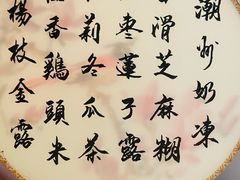 潮州奶凍
滑芝麻糊
棗蓮子露
莉冬瓜茶
香鷄頭米
楊枝金露